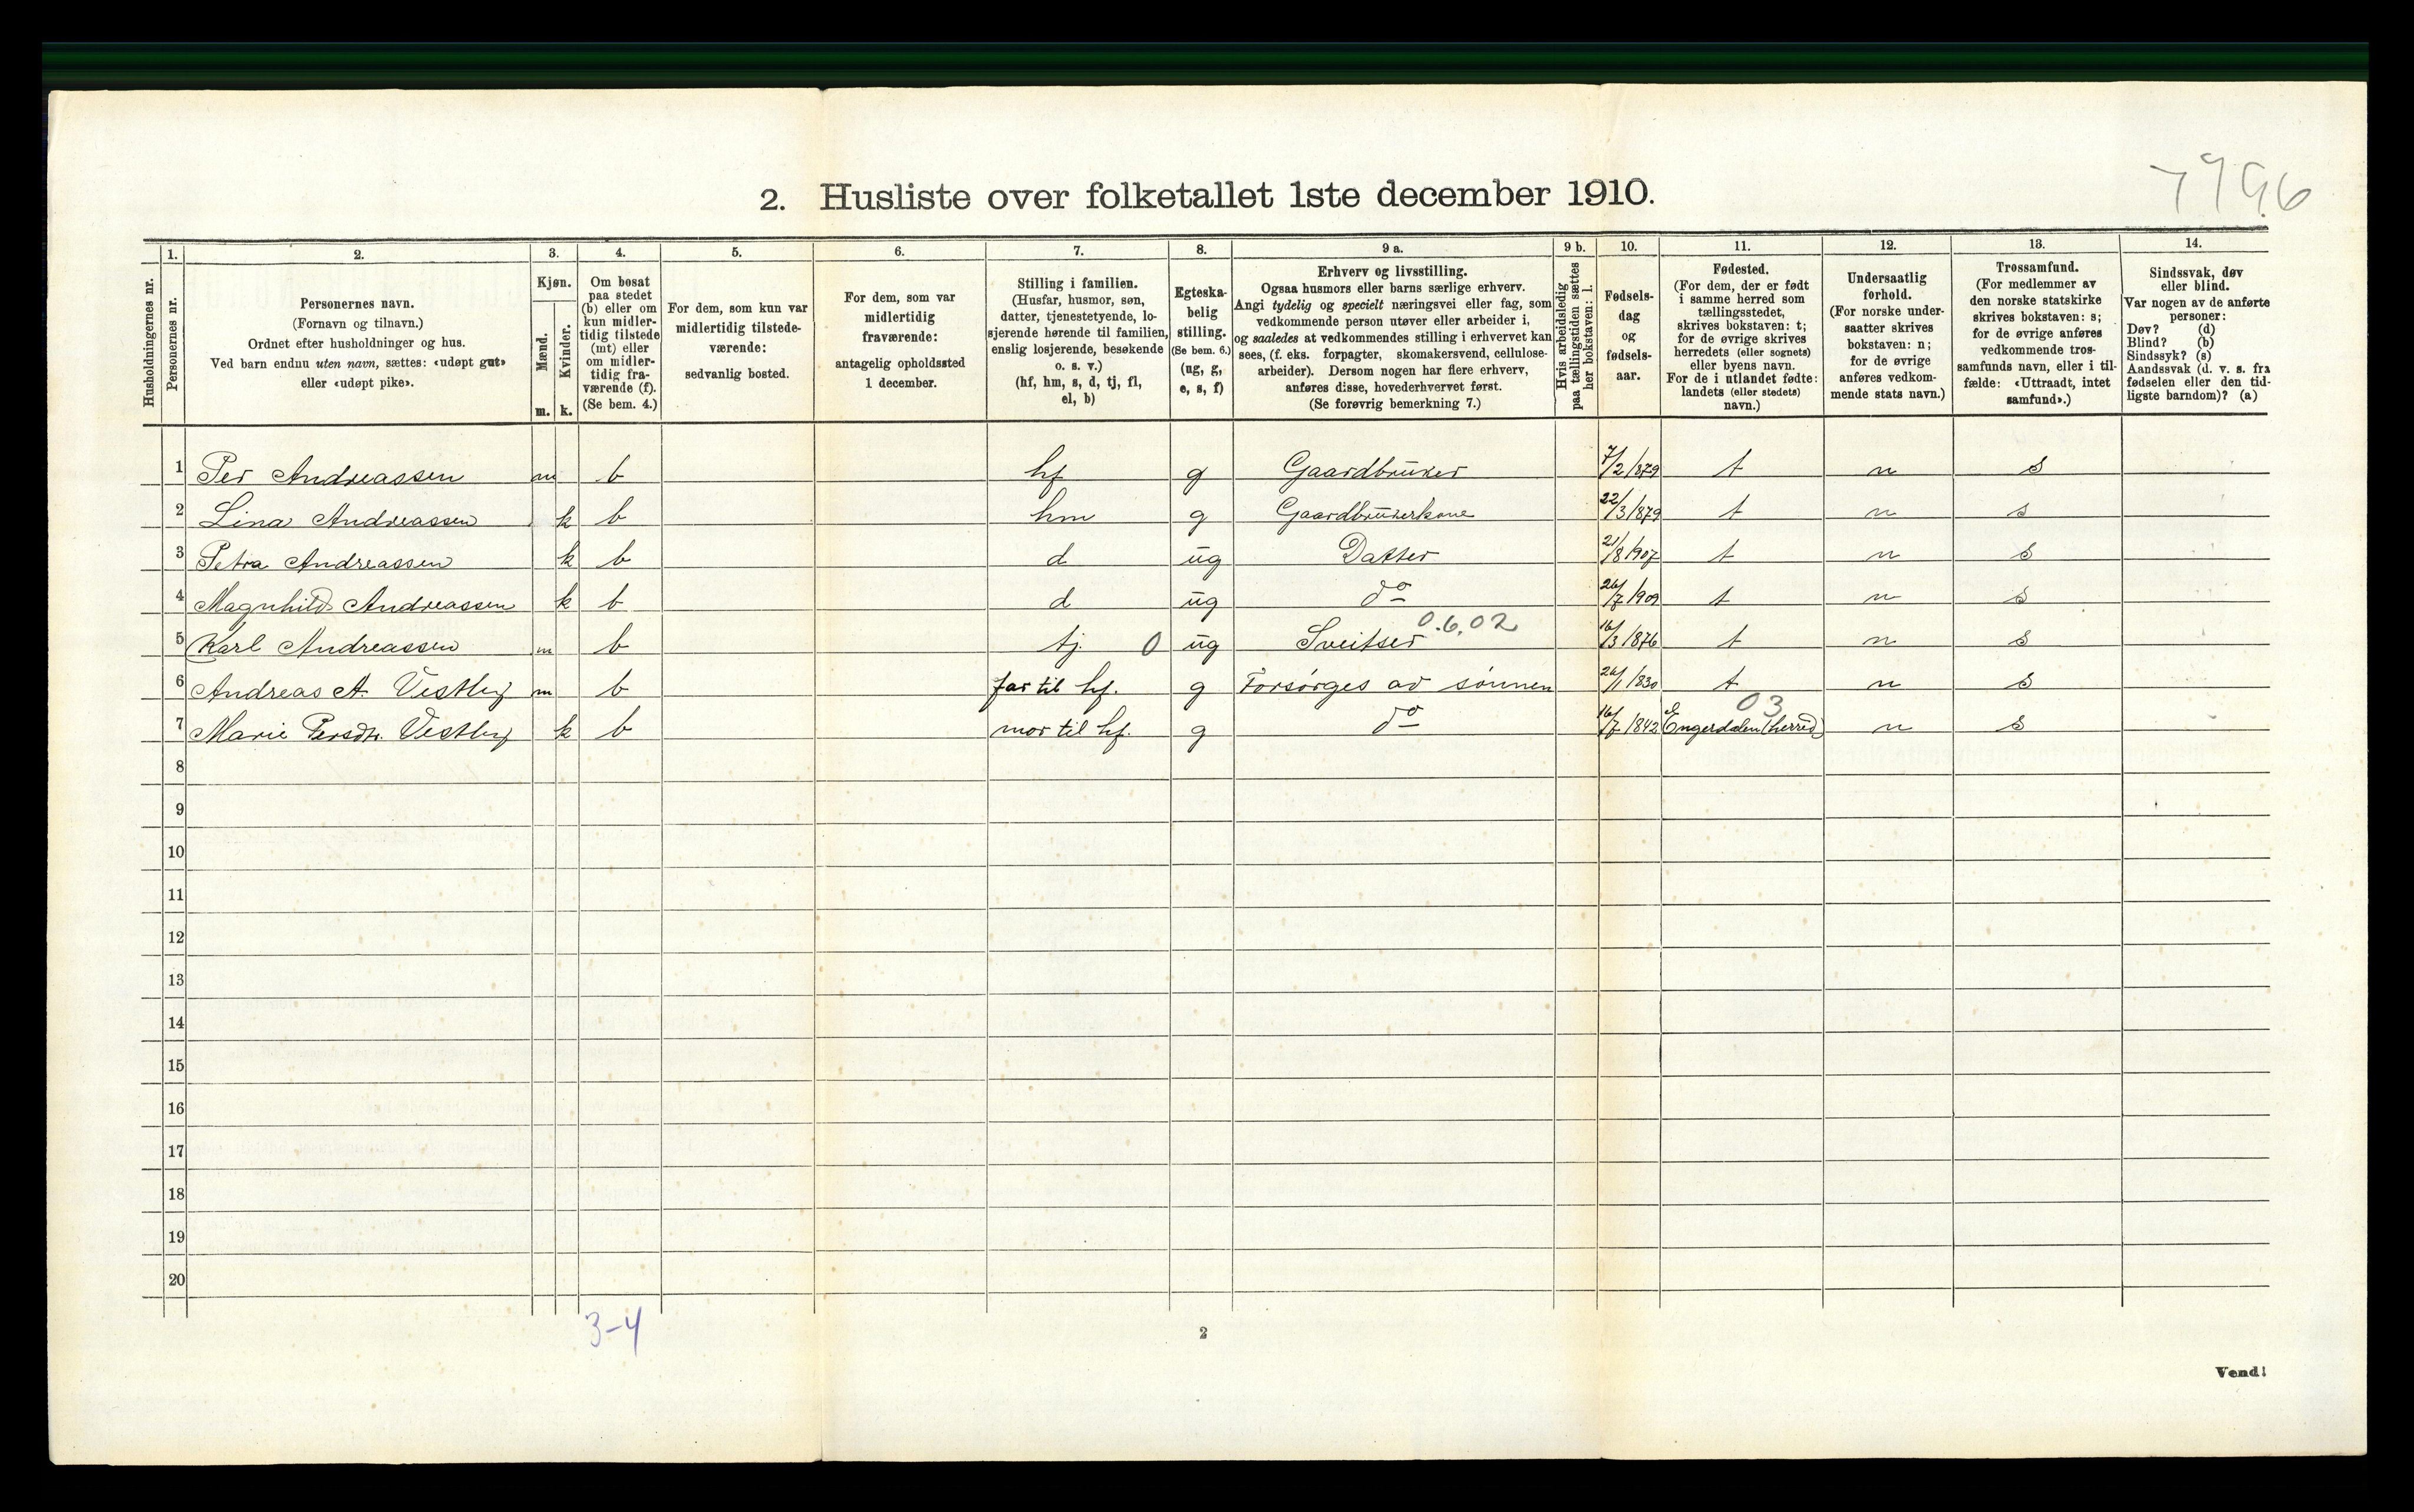 7796
2. Husliste over folketallet 1ste december 1910.
Husholdningernes nr.
1.
Personernes nr.
2.
Personernes navn.
(Fornavn og tilnavn.)
Ordnet efter husholdninger og hus.
Ved barn endnu uten navn, sættes: «udøpt gut»
eller «udøpt pike».
3.
Kjøn.
Mænd.
Kvinder.
m. k.
4.
Om bosat
paa stedet
(b) eller om
kun midler-
tidig tilstede
(mt) eller
om midler-
tidig fra-
værende (f).
(Se bem. 4.)
5.
For dem, som kun var
midlertidig tilstede-
værende:
sedvanlig bosted.
6.
For dem, som var
midlertidig
fraværende:
antagelig opholdssted
1 december.
7.
Stilling i familien.
(Husfar, husmor, søn,
datter, tjenestetyende, lo-
sjerende hørende til familien,
enslig losjerende, besøkende
o. s. v.)
(hf, hm, s, d, tj, fl,
el, b)
8.
Egteska-
belig
stilling.
(Se bem. 6.)
(ug, g,
e, s, f)
9 a.
Erhverv og livsstilling.
Ogsaa husmors eller barns særlige erhverv.
Angi tydelig og specielt næringsvei eller fag, som
vedkommende person utøver eller arbeider i,
og saaledes at vedkommendes stilling i erhvervet kan
sees, (f. eks. forpagter, skomakersvend, cellulose-
arbeider). Dersom nogen har flere erhverv,
anføres disse, hovederhvervet først.
(Se forøvrig bemerkning 7.)
9 b.
Hvis arbeidsledig
paa tællingstiden sættes
her bokstaven: l.
10.
Fødsels-
dag
og
fødsels-
aar.
11.
Fødested.
(For dem, der er født
i samme herred som
tællingsstedet,
skrives bokstaven: t;
for de øvrige skrives
herredets (eller sognets)
eller byens navn.
For de i utlandet fødte:
landets (eller stedets)
navn.)
12.
Undersaatlig
forhold.
(For norske under-
saatter skrives
bokstaven: n;
for de øvrige
anføres vedkom-
mende stats navn.)
13.
Trossamfund.
(For medlemmer av
den norske statskirke
skrives bokstaven: s;
for de øvrige anføres
vedkommende tros-
samfunds navn, eller i til-
fælde: «Uttraadt, intet
samfund».)
14.
Sindssvak, døv
eller blind.
Var nogen av de anførte
personer:
Døv? (d)
Blind? (b)
Sindssyk? (s)
Aandssvak (d. v. s. fra
fødselen eller den tid-
ligste barndom)? (a)
1 Per Andreassen m b hf g Gaardbruker 7/2 1879 t n s
2 Lina Andreassen k b hm g Gaardbrukerkone 22/3 1879 t n s
3 Petra Andreassen k b d ug Datter 21/8 1907 t n s
4 Magnhild Andreassen k b d ug do 26/7 1909 t n s
5 Karl Andreassen m b tj. 0 ug Sveitser 0.6.02 16/3 1876 t n s
6 Andreas A. Vestby m b far til hf. g Forsørges av sønnen 26/1 1830 t n s
03
7 Marie Persdtr. Vestby k b mor til hf. g do 16/7 1842 Engerdalen (herred) n s
8
9
10
11
12
13
14
15
16
17
18
19
20
3-4
2
Vend!